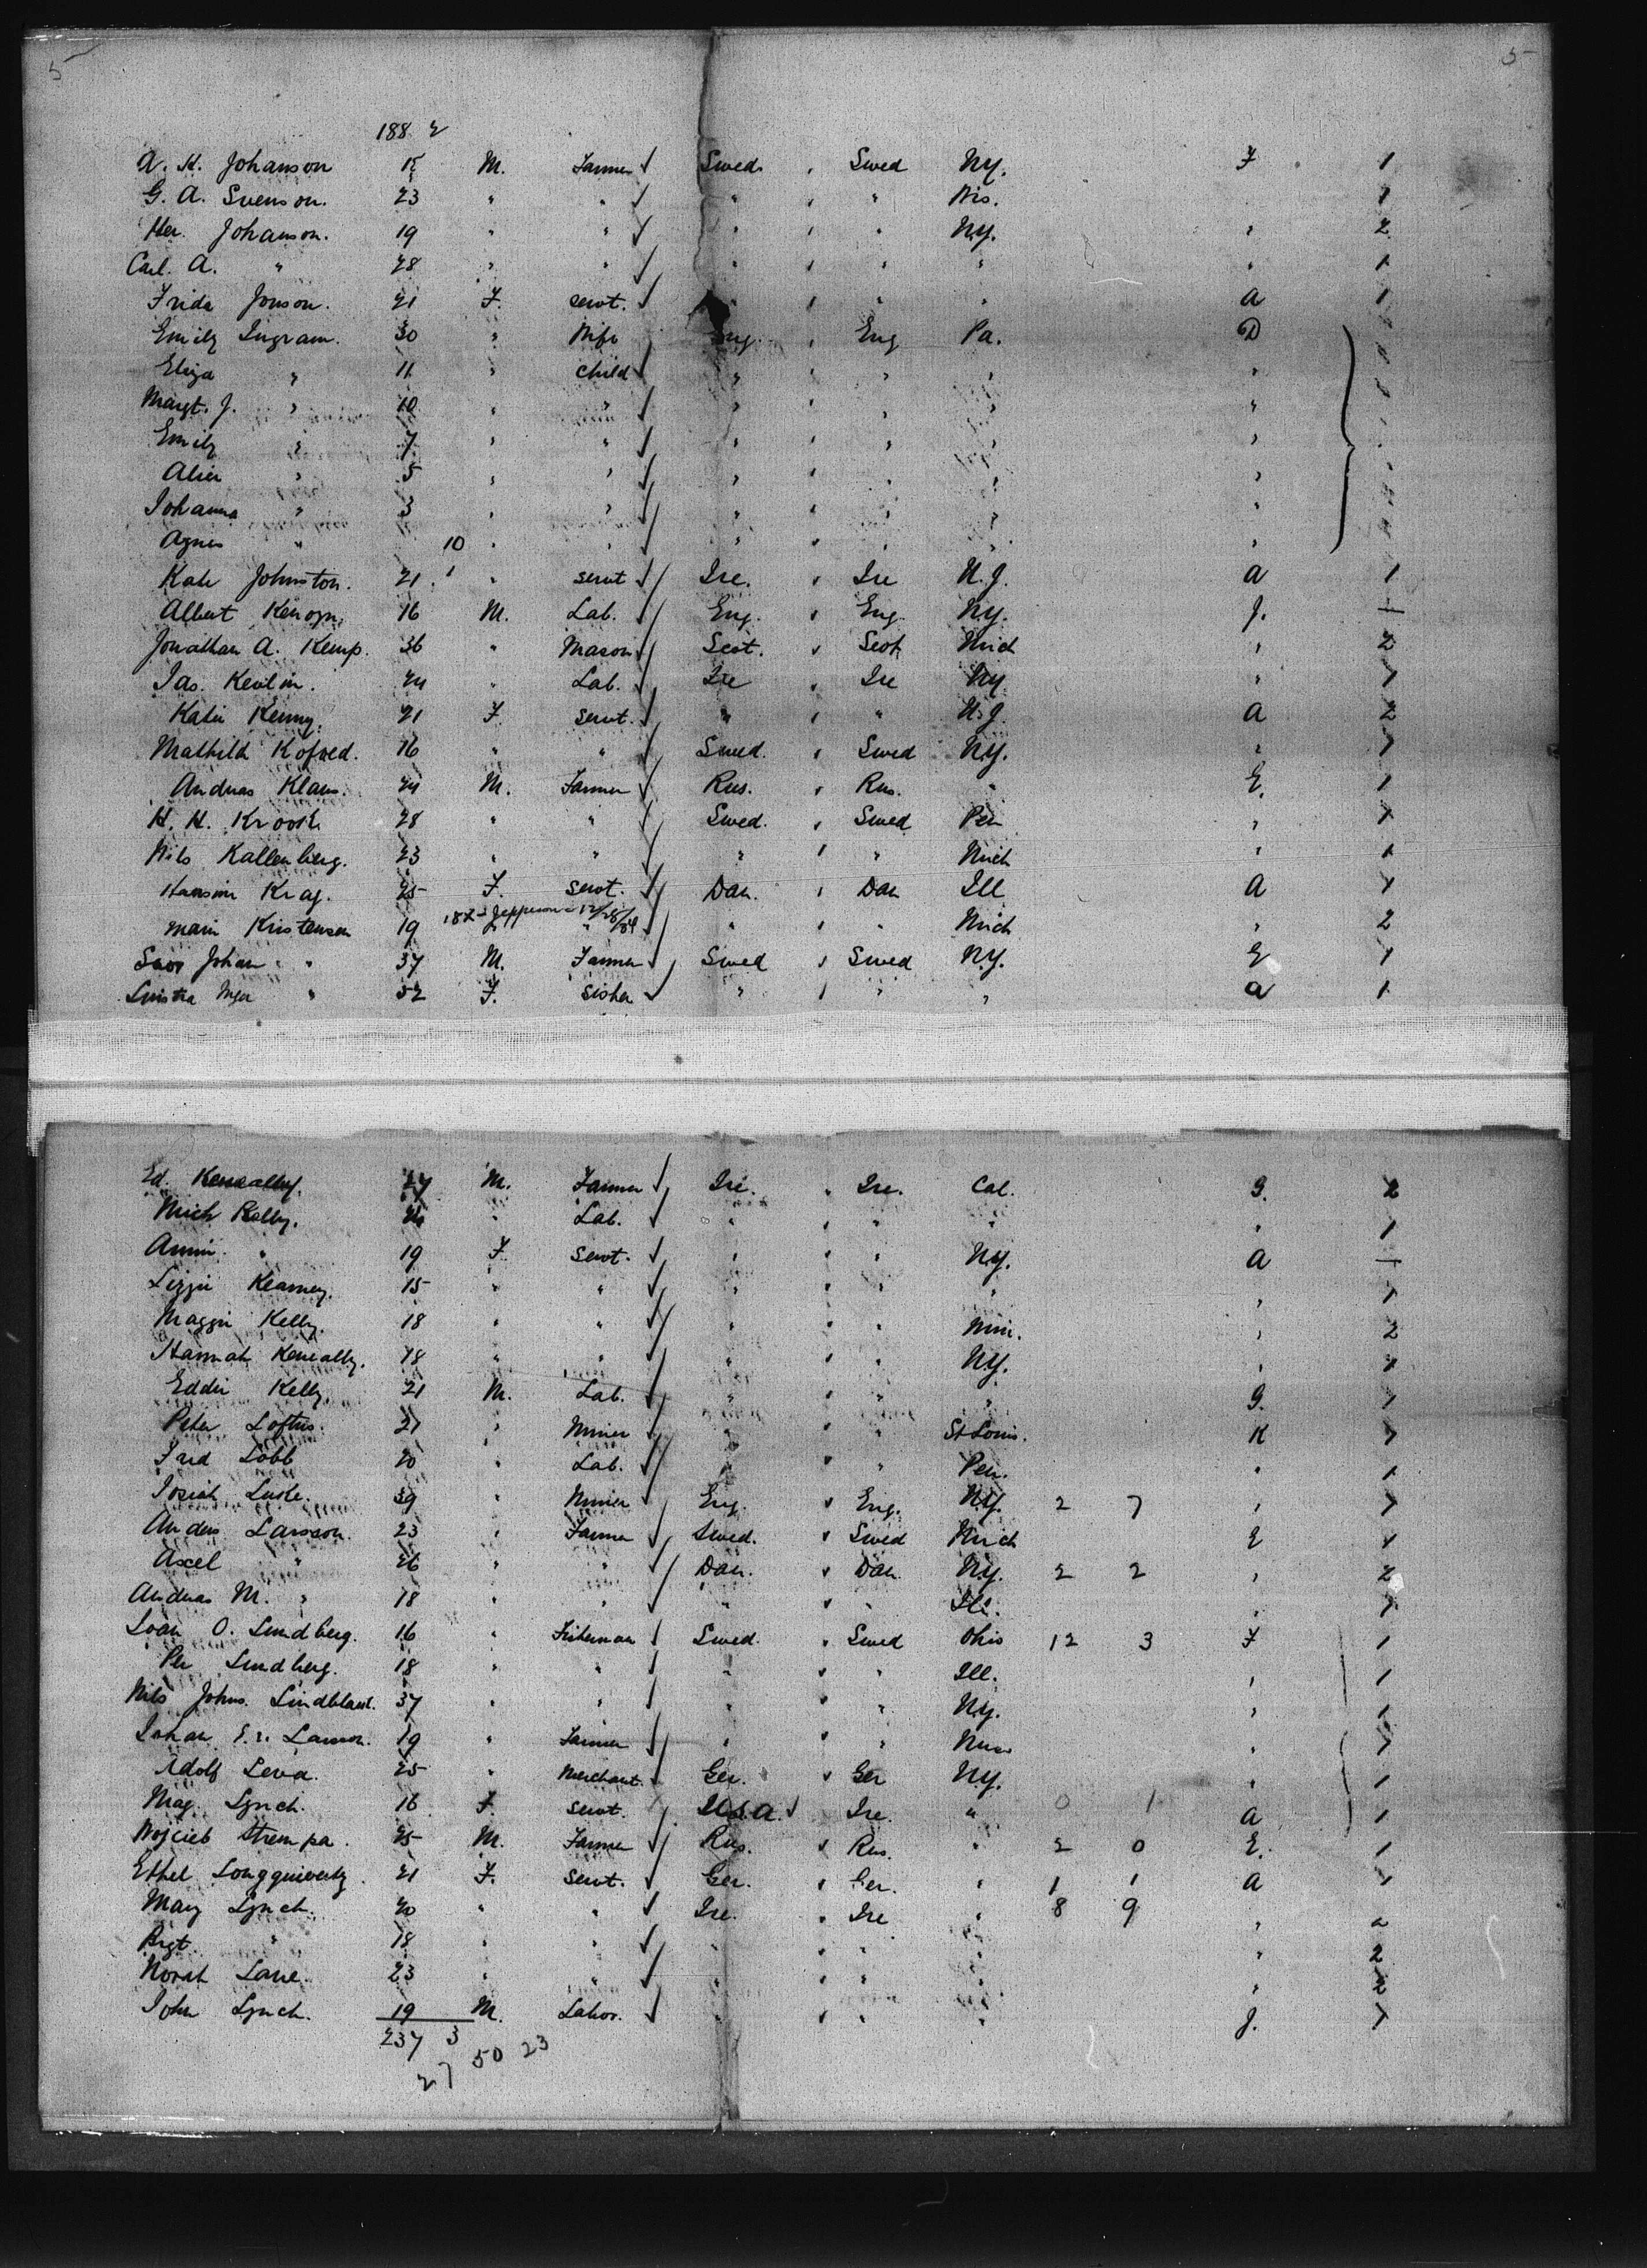 5 5
188
A. K. Johanson M. Farmer Swed Swed NY. F 1
G. A. Svenson. 23 " " " " Wis. 1
Her. Johanson. 19 " " " " NY. " 2
Carl. A. " 28 " " " " " " 1
Frida Jonson. 21 F. servt. " " " A 1
Emily Ingram. 30 " Wife Eng. Eng Pa. D
Eliza " 11 " child " " " "
Margt. J. " 10 " " " " " "
Emily " 7 " " " " " "
Alice " 5 " " " " " "
Johanna " 3 " " " " " "
Agnes " 10 " " " " " "
Kate Johnston. 21 " servt Ire. Ire N.J. A 1
Albert 16 M. Lab. Eng. Eng NY. J. 1
Jonathan A. Kemp. 36 " Mason Scot. Scot Mich " 2
Jas. Kevlin. 24 " Lab. Ire Ire NY " 1
Katie Kenny. 21 F. servt. " " N.J. A 2
Mathilda Kofoed. 16 " " Swed. Swed NY. " 1
Andreas Klaus. 24 M. Farmer Rus. Rus. " E. 1
H. H. Krook 28 " " Swed. Swed Pen " 1
Nils Kallenberg. 23 " " " " Mich " 1
Hansine Krag. 25 F. servt. Dan. Dan Ill A 1
182 - Jepperson - 12/28/34
Marie Kristensen 19 " " " Mich " 2
Johan " 37 M. Farmer Swed Swed NY. E 1
" 52 F. Sister " " " A 1
Ed. Keneally. 27 M. Farmer Ire. Ire. Cal. G. 2
Mich Kelly. 24 " Lab. " " " " 1
Annie " 19 F. servt. " " NY. A 1
Lizzie Kearney. 15 " " " " " " 1
Maggie Kelly. 18 " " " " Min. " 2
Hannah Keneally. 18 " " " " NY. " 1
Eddie Kelly. 21 M. Lab. " " " G. 1
Peter Loftus. 21 " Miner " " St Louis. K 1
Fred Lobb 20 " Lab. " " Pen. " 1
Josiah 39 " Miner Eng. Eng. NY. 2 7 " 1
Anders Larsson. 23 " Farmer Swed. Swed Mich E 1
Axel " 26 " " Dan. Dan NY. 2 2 " 2
Andreas M. " 18 " " " " Ill. " 1
O. Lundberg. 16 " Fisherman Swed. Swed Ohio 12 3 F 1
Per Lundberg. 18 " " " " Ill. " 1
Nils Johns. 37 " " " " NY. " 1
Johan Larsson. 19 " Farmer " " " 1
Adolf Leva. 25 " Merchant. Ger. Ger NY. " 1
Mag. Lynch. 16 F. servt. U.S.A. Ire. " 0 1 A 1
Wojcieb 25 M. Farmer Rus. Rus. " 2 0 E. 1
Ethel 21 F. servt. Ger. Ger. " 1 1 A 1
Mary Lynch. 20 " " Ire. Ire " 8 9 " 2
Brgt. " 18 " " " " " " 2
Norah Lane. 23 " " " " " " 2
John Lynch. 19 M. Labor. " " " J. 1
237 3
27 50 23